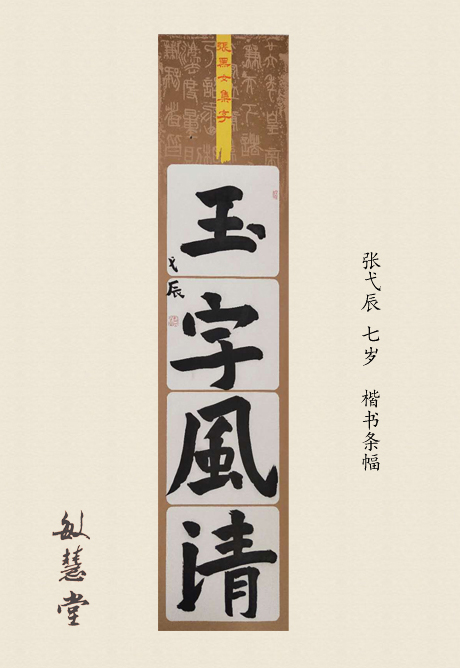 張黑女集字
玉字風清
弋辰
张弋辰 七岁 楷书条幅
敏慧堂